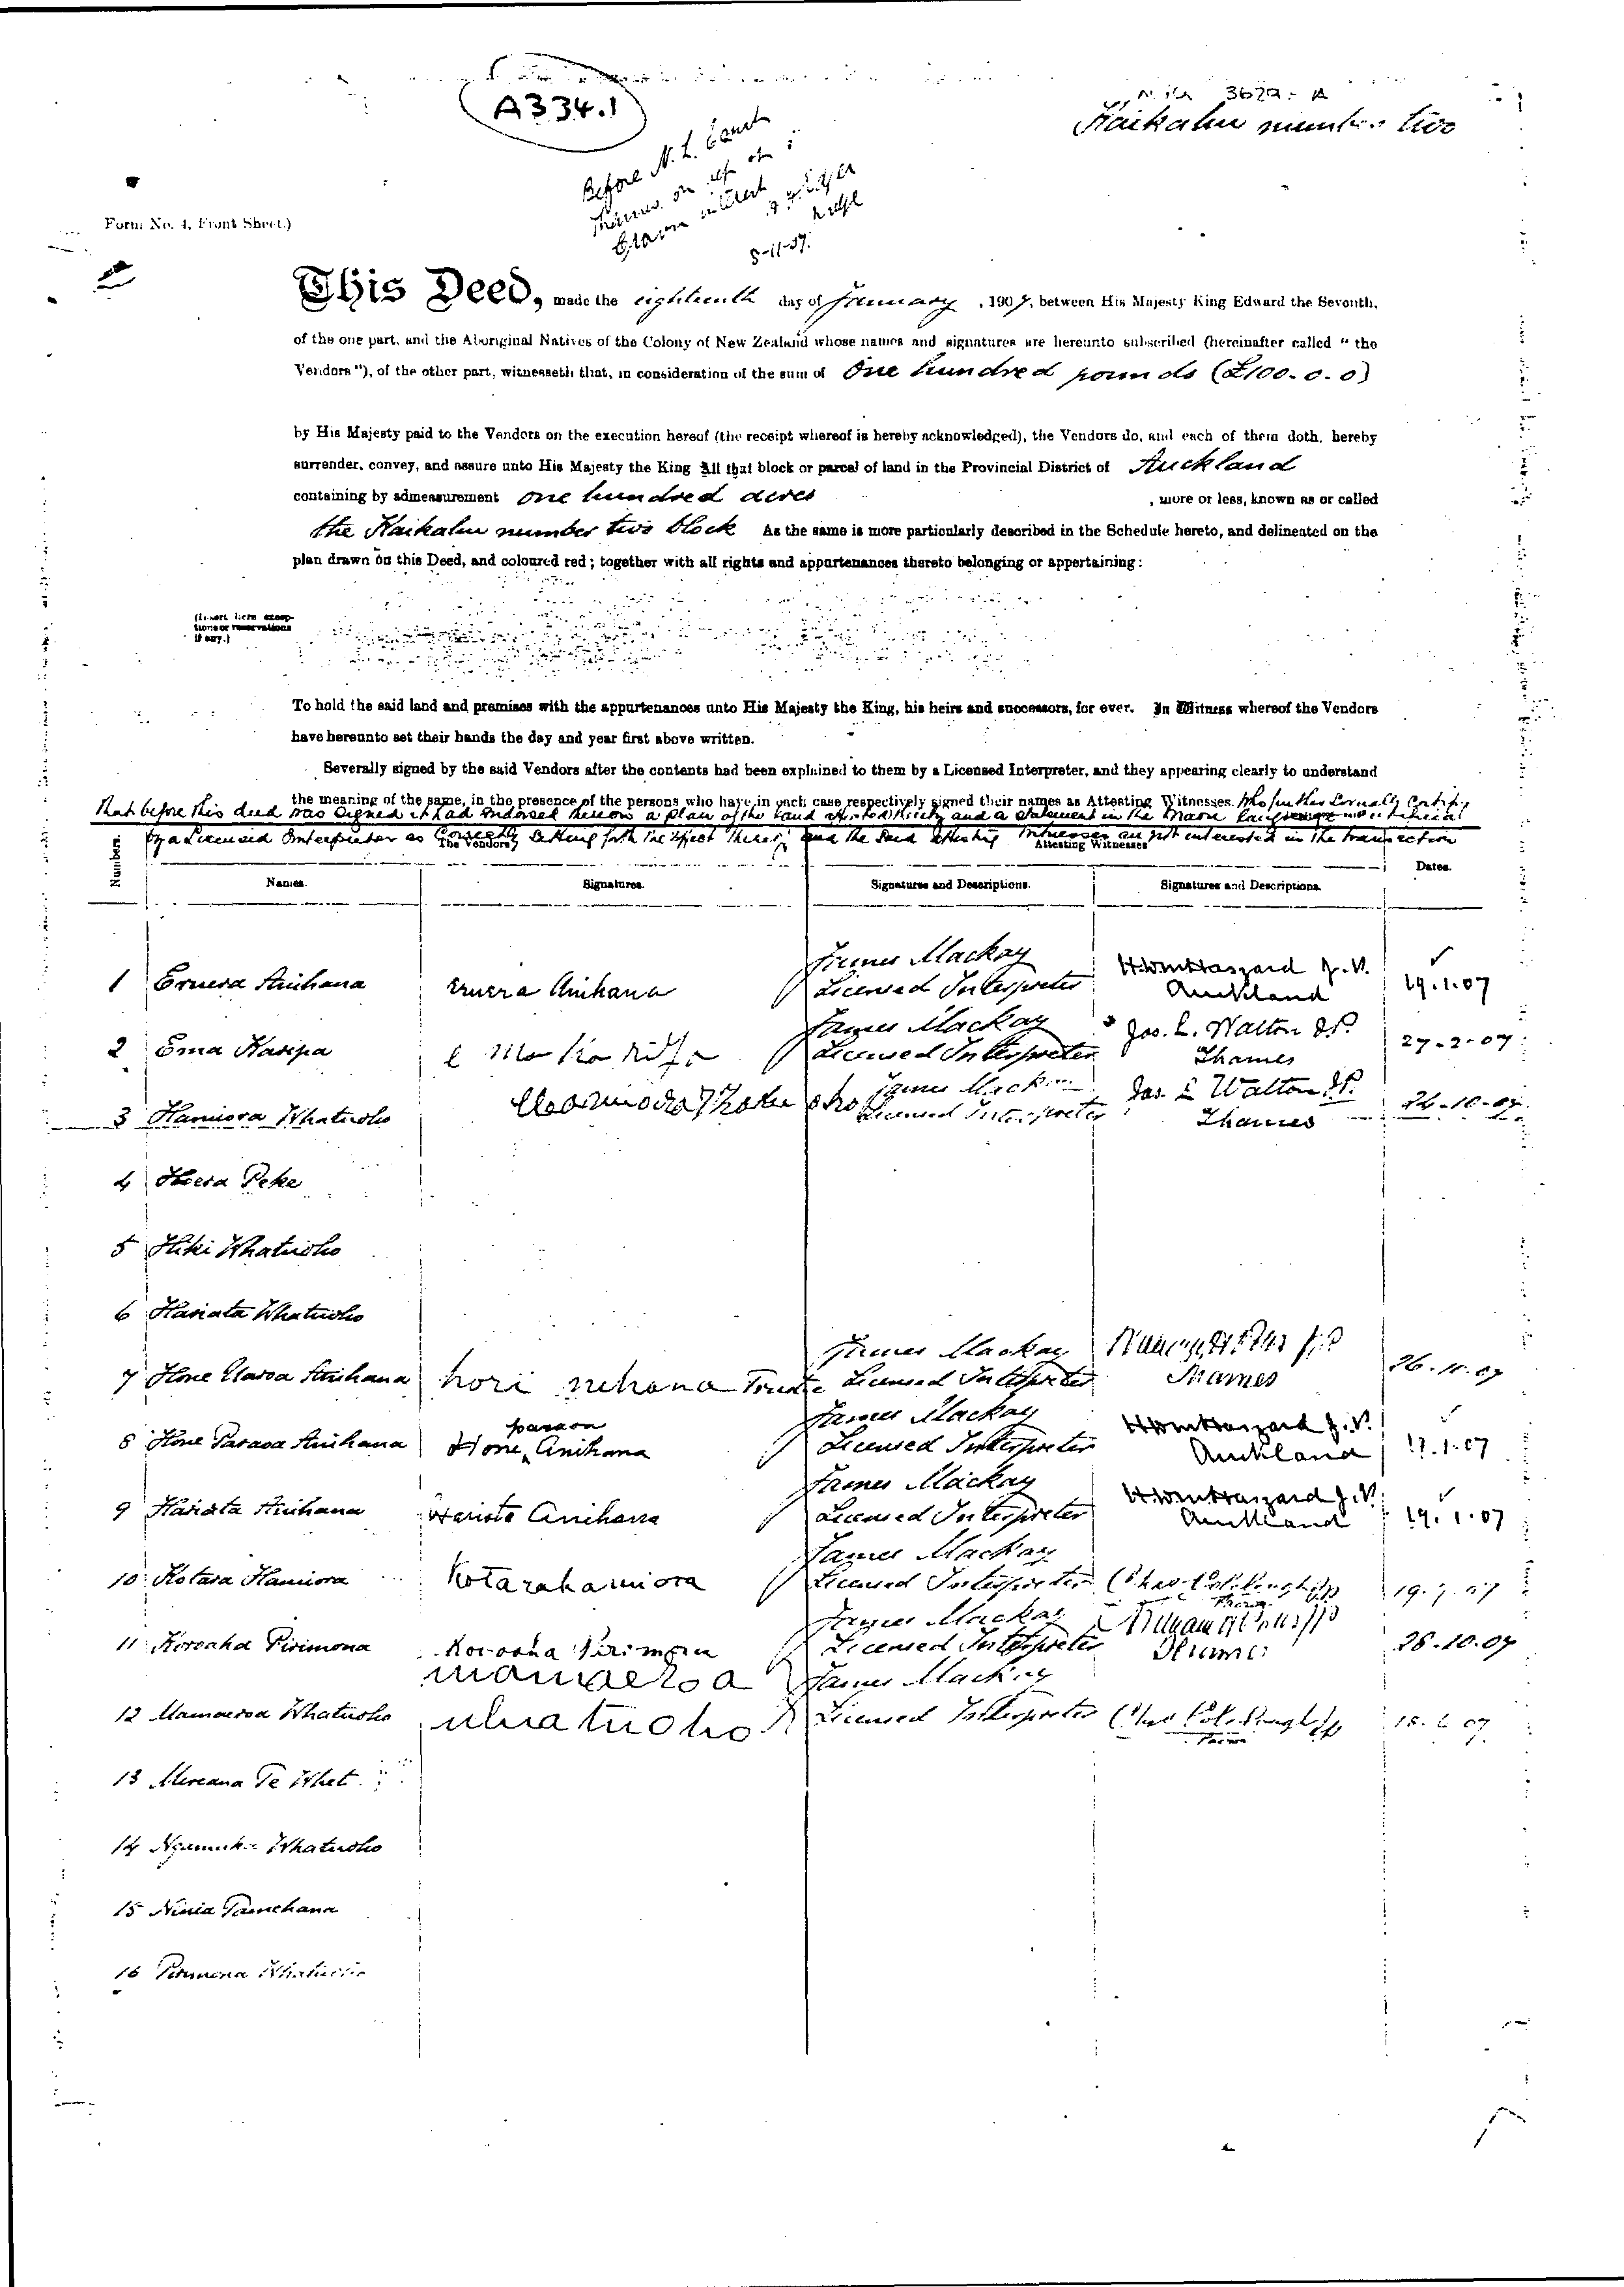 A334.1
Kaikahu number two
Before N. L. Court
Thames on
8-11-07.
Form No. 4, Front Sheet.)
This Deed, made the eighteenth day of January, 1907, between His Majesty King Edward the Seventh,
of the one part, and the Aboriginal Natives of the Colony of New Zealand whose names and signatures are hereunto subscribed (hereinafter called "the
Vendors"), of the other part, witnesseth that, in consideration of the sum of One hundred pounds (£100.0.0)
by His Majesty paid to the Vendors on the execution hereof (the receipt whereof is hereby acknowledged), the Vendors do, and each of them doth, hereby
surrender, convey, and assure unto His Majesty the King All that block or parcel of land in the Provincial District of Auckland
containing by admeasurement One hundred acres , more or less, known as or called
the Kaikahu number two block As the same is more particularly described in the Schedule hereto, and delineated on the
plan drawn on this Deed, and coloured red; together with all rights and appurtenances thereto belonging or appertaining:
(Insert here excep-
tions or reservations
if any.)
To hold the said land and premises with the appurtenances unto His Majesty the King, his heirs and successors, for ever. In Witness whereof the Vendors
have hereunto set their hands the day and year first above written.
Severally signed by the said Vendors after the contents had been explained to them by a Licensed Interpreter, and they appearing clearly to understand
the meaning of the same, in the presence of the persons who have in each case respectively signed their names as Attesting Witnesses. Who further formally certify
that before this deed was signed it had endorsed thereon a plan of the land affected thereby and a statement in the Maori language
by a Licensed Interpreter as correctly setting forth the effect thereof and the said attesting witnesses are not interested in the transaction
Number. The Vendors Attesting Witnesses
Names. Signatures. Signatures and Descriptions. Signatures and Descriptions. Dates.
1 Eruera Anihana eruera Anihana James Mackay Licensed Interpreter J.P. Auckland 19.1.07
2 Ema Karipa James Mackay Licensed Interpreter Jas. L. Walton J.P. Thames 27-2-07
3 Hamiora Whatuoho James Mackay Licensed Interpreter Jas. L. Walton J.P. Thames 26-10-07
4 Peke
5 Hiki Whatuoho
6 Hariata Whatuoho
7 Hone Anihana hori James Mackay Licensed Interpreter Thames 26.11.07
8 Hone Paraoa Anihana Hone paraoa Anihana James Mackay Licensed Interpreter J.P. Auckland 19.1.07
9 Hariata Anihana Hariata Anihana James Mackay Licensed Interpreter J.P. Auckland 19.1.07
10 Kotara Hamiora Kotarahamiora James Mackay Licensed Interpreter 19.7.07
11 Koroaha Pirimona Koroaha Pirimona James Mackay Licensed Interpreter Thames 26-10-07
12 Mamaeroa Whatuoho mamaeroa whatuoho James Mackay Licensed Interpreter
13 Mereana Te
14 Whatuoho
15 Ninia Tamehana
16 Whatuoho